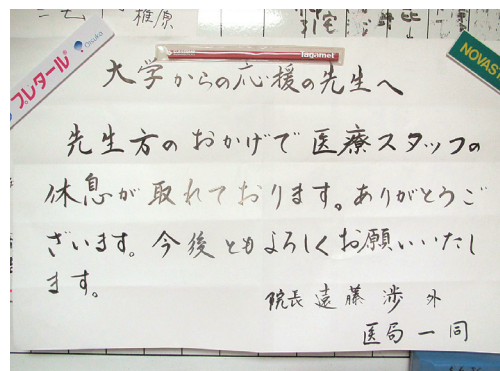 椎原
プレタール
Otsuka
Tagamet
NOVAS
大学からの応援の先生へ
先生方のおかげで医療スタッフの
休息が取れております。ありがとうご
ざいます。今後ともよろしくお願いいたし
ます。
院長 遠藤 渉 外
医局一同